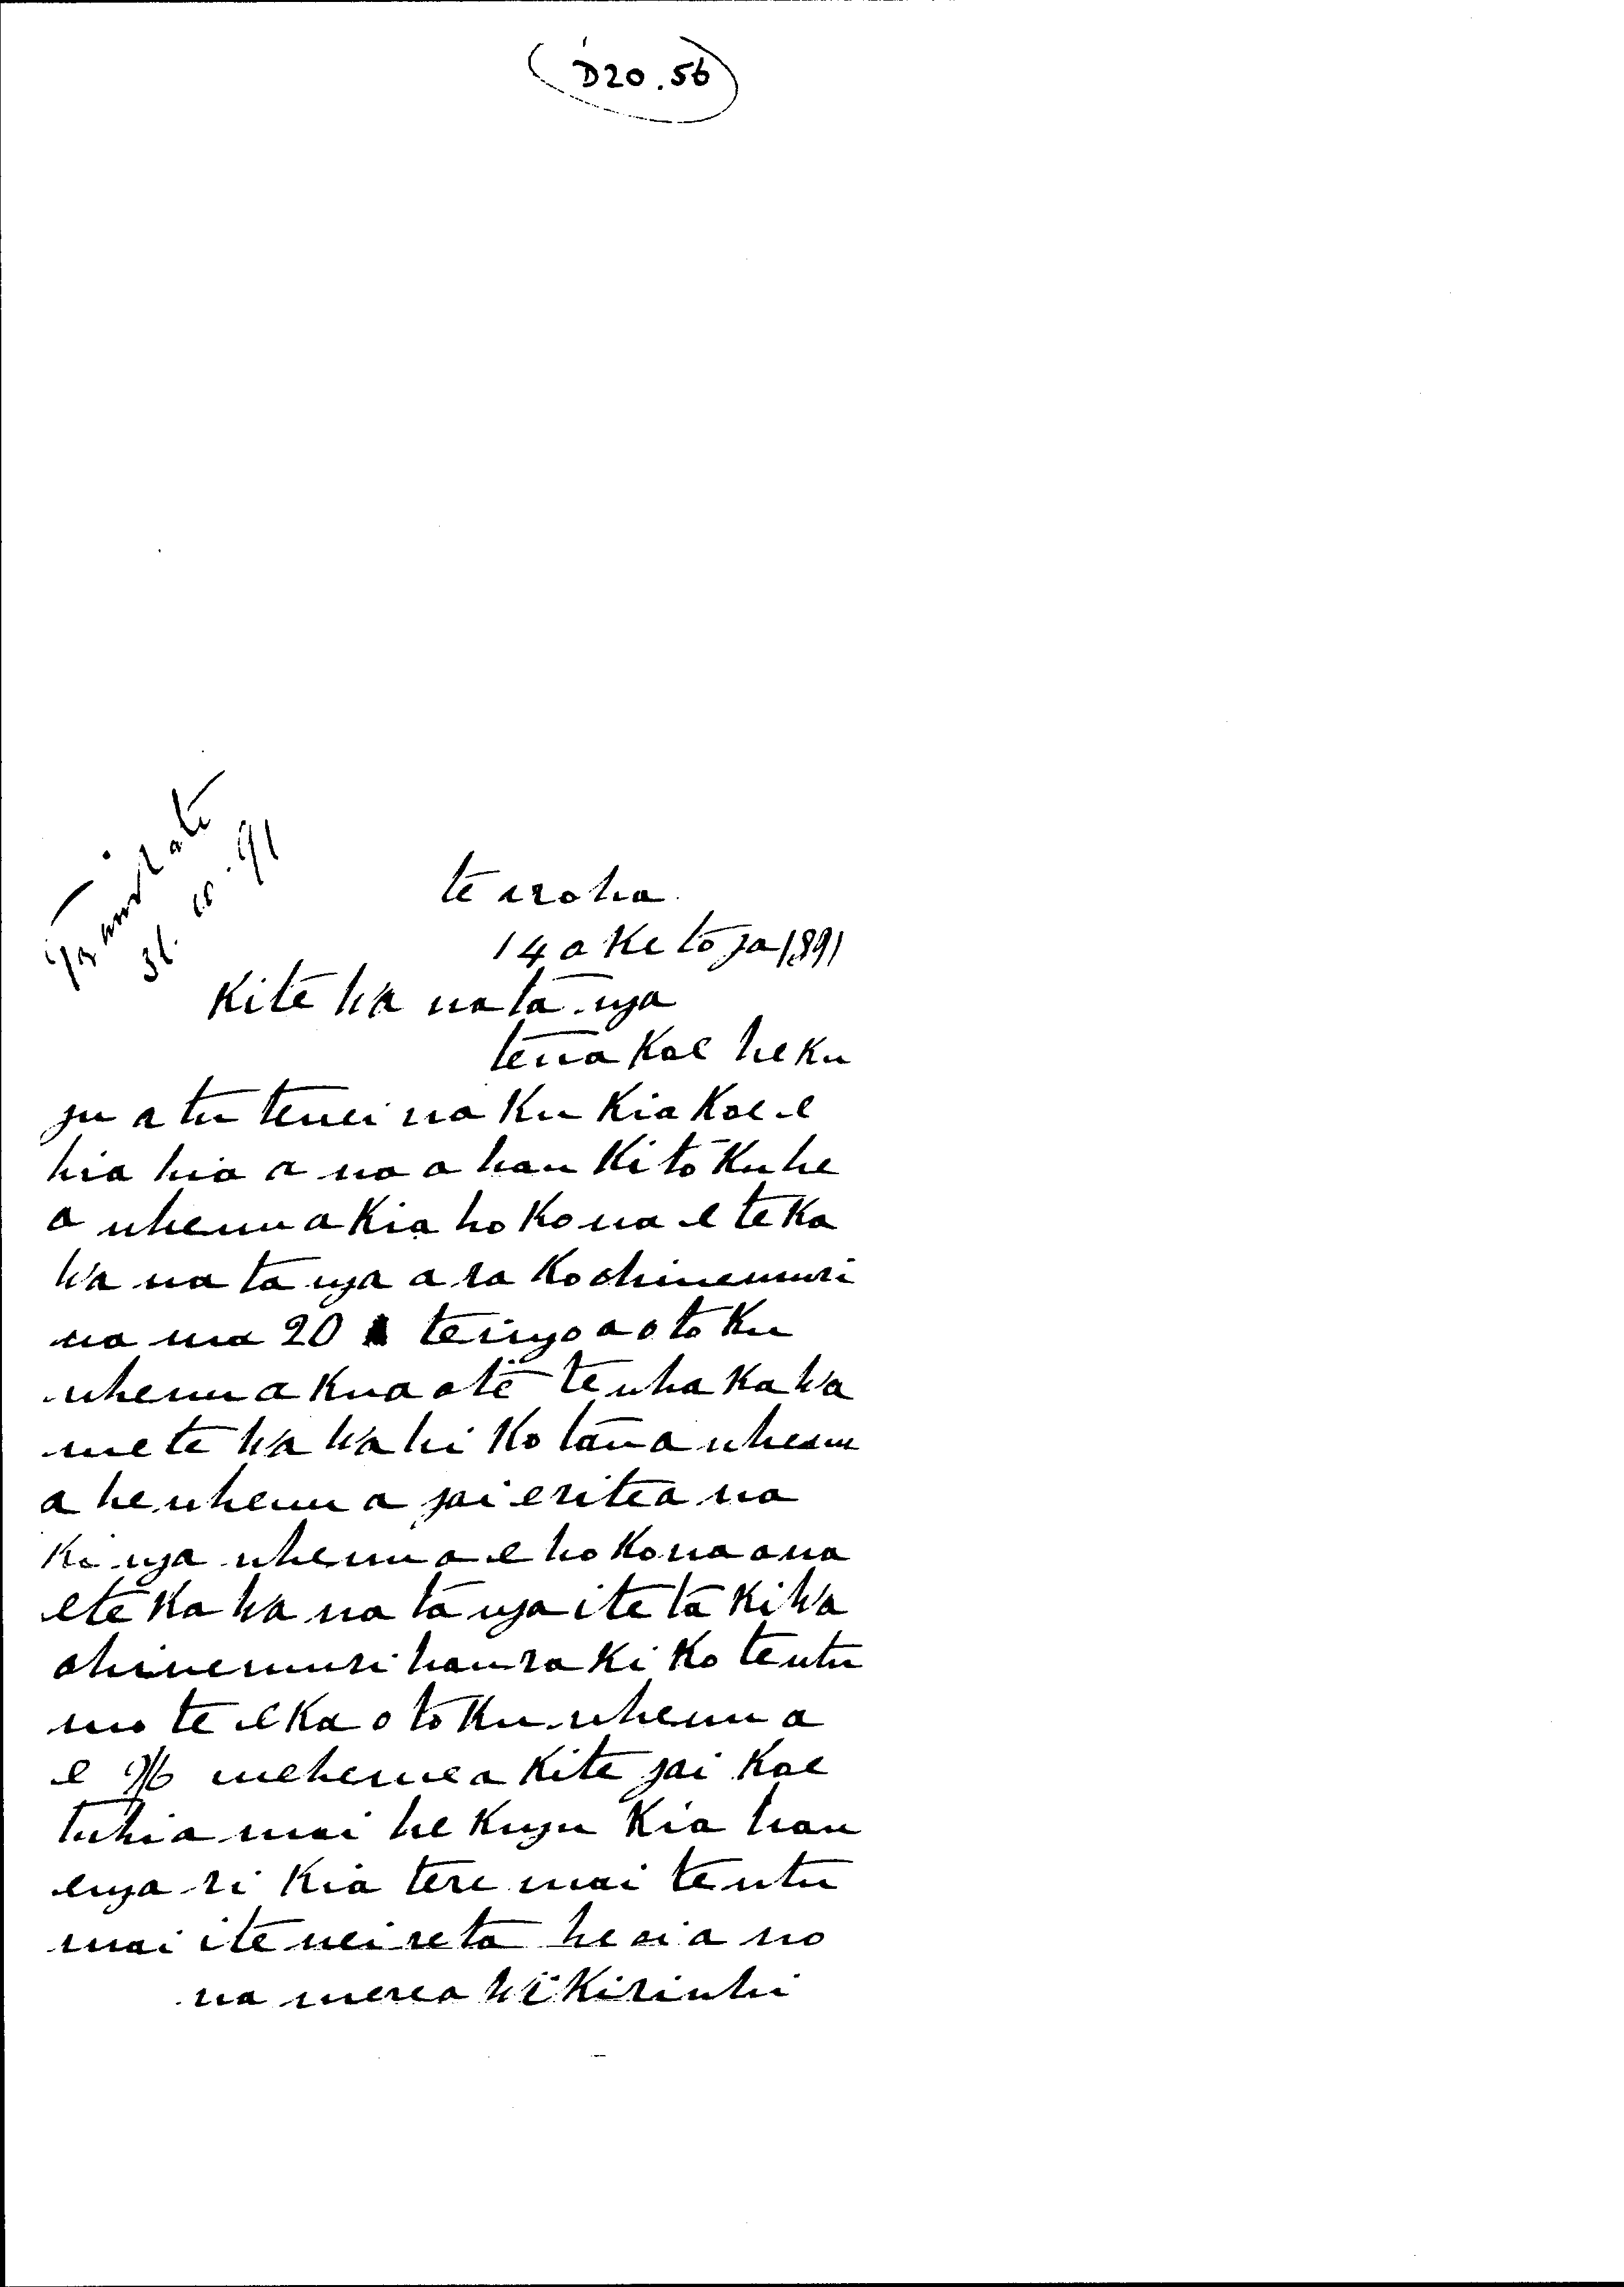 D20.56
Translate
31.10.91
te aroha
14 oketopa 1891
Kite Kawanatanga
tena Koe he Ku
pu atu tenei na Ku Kia Koe e
hia hia a na a hau Ki to Ku he
a whenu a Kia ho Ko na e te Ka
wa na ta nga a ra Ko ohinemuri
na ma 20 te ingo a o to Ku
whenu a Kua ote te wha Ka wa
me te wa wa hi Ko tana whenu
a he whenu a pai e rite a na
Ki nga whenu a e ho Ko na ana
e te Ka wa na ta nga i te ta Ki wa
ohinemuri hau ra Ki Ko te utu
mo te e Ka o to Ku whenu a
e 9/6 mehemea Kite pai Koe
tuhia mai he Kupu Kia hau
enga ri Kia tere mai te utu
mai i te nei reta heoi a no
na merea wi Kiriwhi